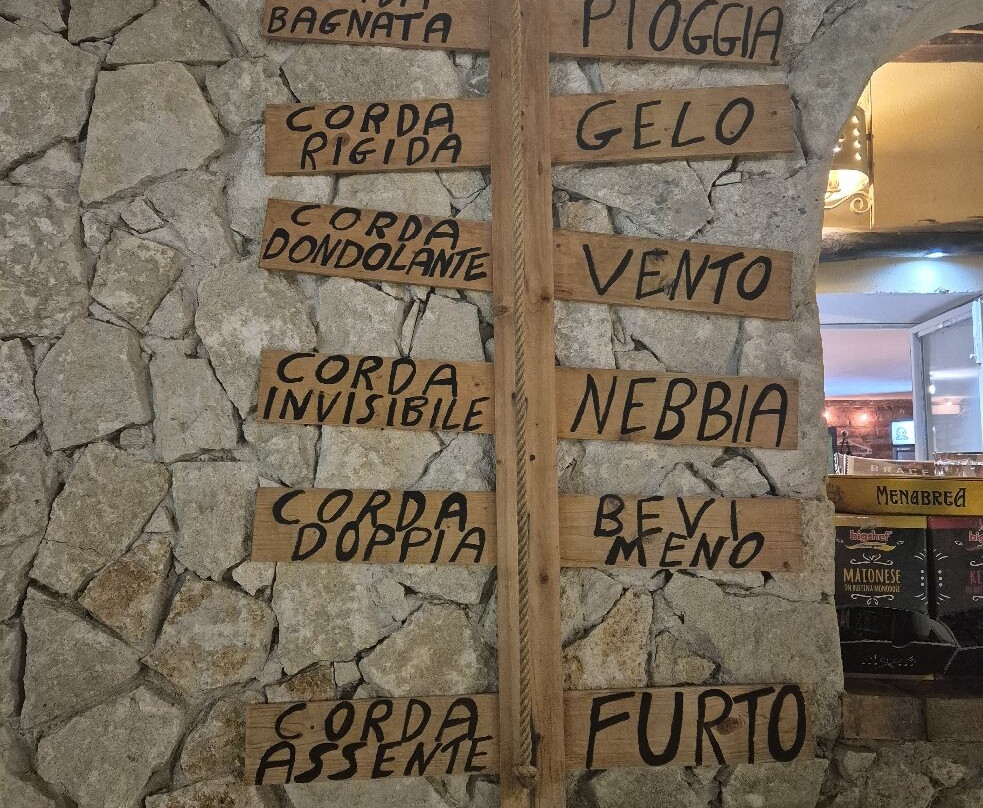 BAGNATA
PIOGGIA
CORDA
RIGIDA
GELO
CORDA
DONDOLANTE
VENTO
CORDA
INVISIBILE
NEBBIA
CORDA
DOPPIA
BEVI
MENO
CORDA
ASSENTE
FURTO
MENABREA
bigchef
MAIONESE
IN BUSTINA MONODOSE